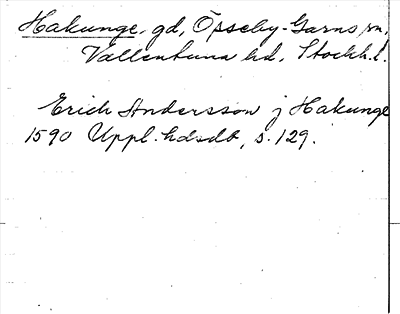 Hakunge, gd, Össeby-Garns sn,
Vallentuna hd, Stockh. l.
Erich Andersson j Hakunge
1590 Uppl. hdsdb, s. 129.